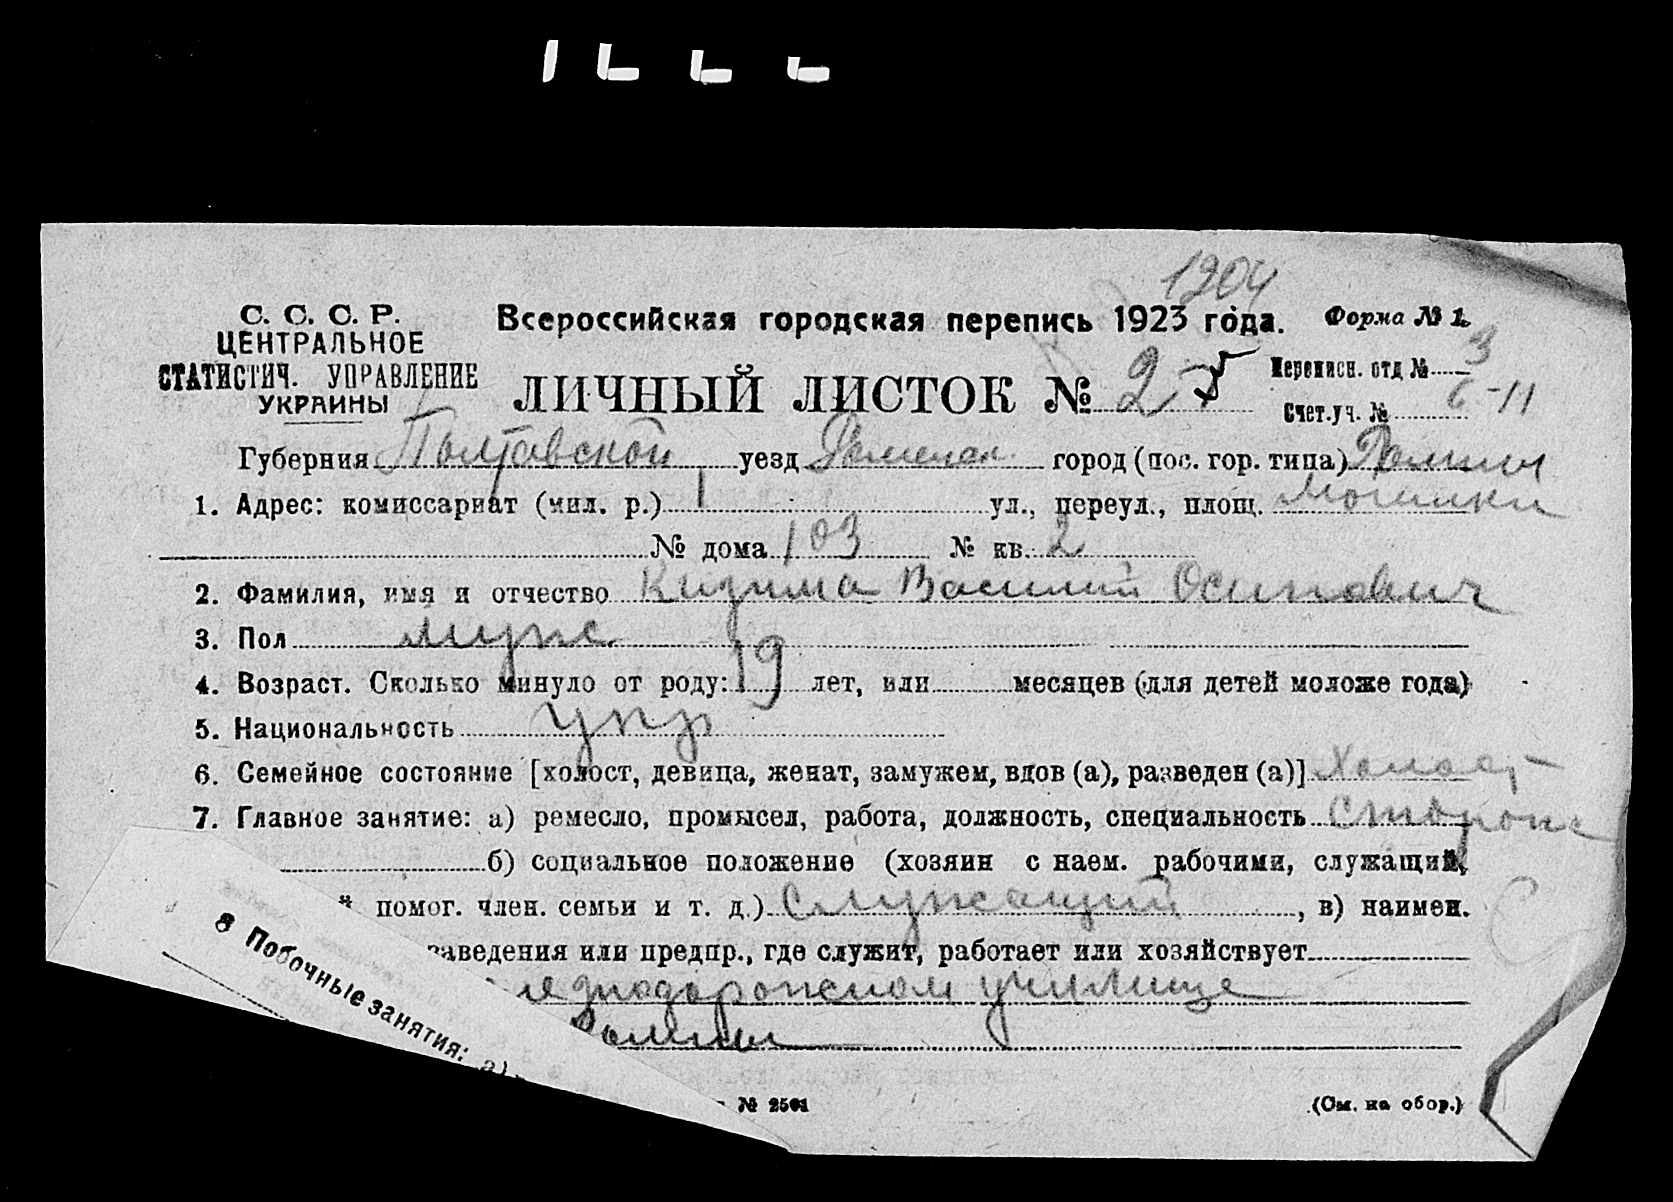 1204
С. С. С. Р.
ЦЕНТРАЛЬНОЕ
СТАТИСТИЧ. УПРАВЛЕНИЕ
УКРАИНЫ
Всероссийская городская перепись 1923 года.
Форма № 1.
ЛИЧНЫЙ ЛИСТОК № 2
Переписн. отд № 3
Счет.уч. № 6-11
Губерния Полтавской уезд Роменск. город (пос. гор. типа) Ромны
1. Адрес: комиссариат (мил. р.) 1 ул., переул., площ.
№ дома 103 № кв. 2
2. Фамилия, имя и отчество Кизима Василий Осипович
3. Пол мужс.
4. Возраст. Сколько минуло от роду: 19 лет, или месяцев (для детей моложе года)
5. Национальность укр
6. Семейное состояние [холост, девица, женат, замужем, вдов (а), разведен (а)] Холост
7. Главное занятие: а) ремесло, промысел, работа, должность, специальность Сторож
б) социальное положение (хозяин с наем. рабочими, служащий,
й помог. член. семьи и т. д.) Служащий, в) наимен.
заведения или предпр., где служит, работает или хозяйствует
езнодорожном училище
Ромны
8 Побочные занятия: а)
№ 2501
(См. на обор.)